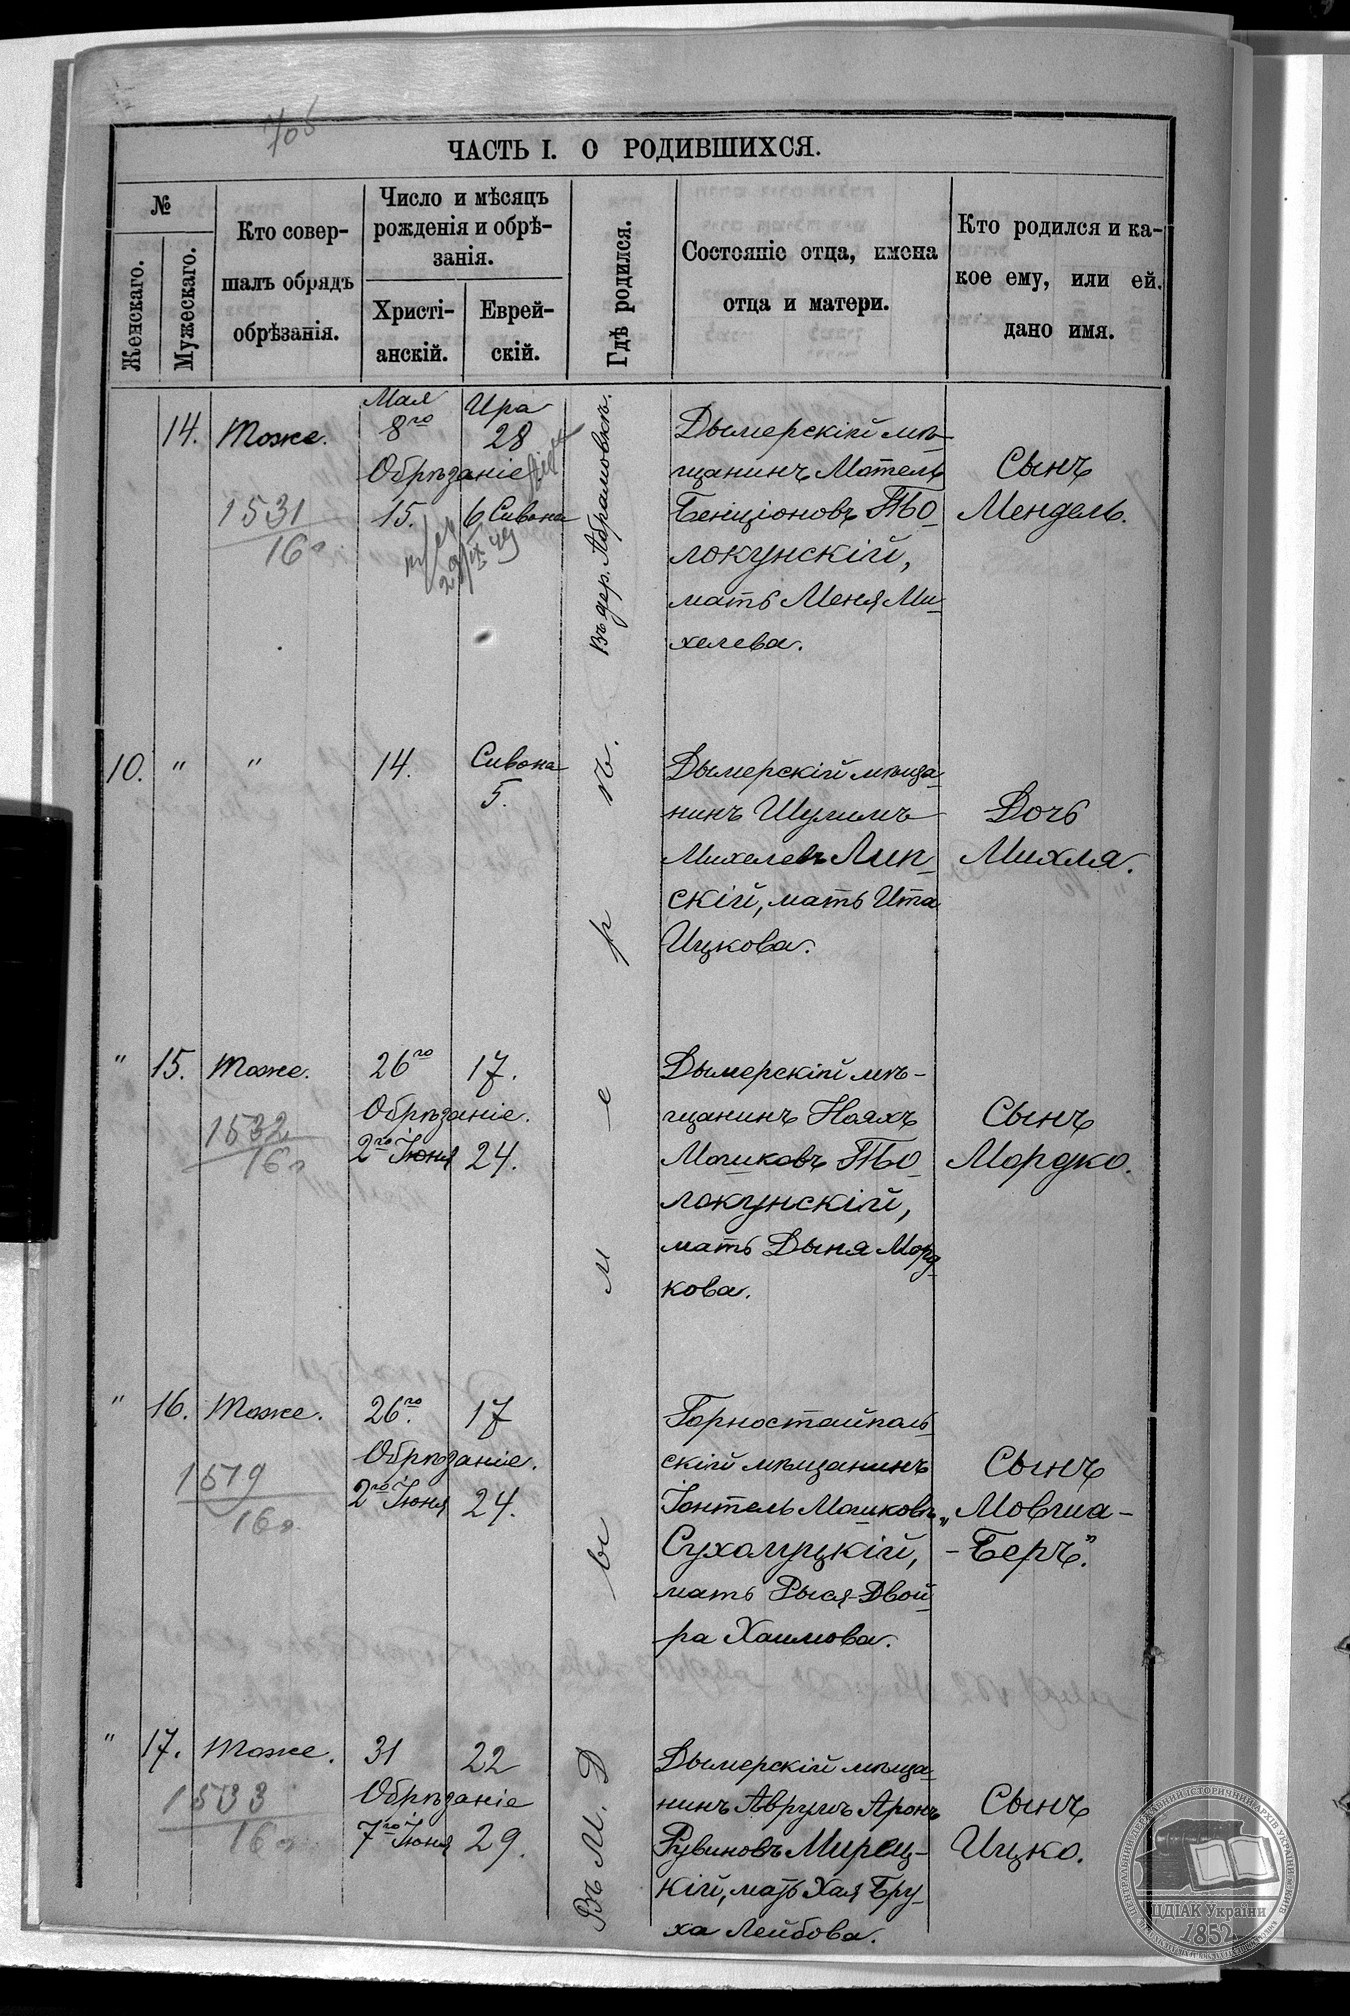 705
ЧАСТЬ I. О РОДИВШИХСЯ.
№
Женскаго.
Мужескаго.
Кто совер-
шалъ обрядъ
обрѣзанія.
Число и мѣсяцъ
рожденія и обрѣ-
занія.
Христі-
анскій.
Еврей-
скій.
Гдѣ родился.
Состояніе отца, имена
отца и матери.
Кто родился и ка-
кое ему, или ей.
дано имя.
14. Тоже.
1531
160
Мая
8го
Ира
28
Обрѣзаніе.
15.
6 Сивона
Въ дер. Абрамовкѣ.
Дымерскій мѣ-
щанинъ Мотель
Бенціоновъ То-
локунскій,
мать Меня Ми-
хелева.
Сынъ
Мендель.
10. " "
14.
Сивона
5.
Дымерскій мѣща-
нинъ Шулимъ
Михелевъ Лип-
скій, мать Ита
Ицкова.
Дочь
Михля.
" 15. Тоже.
1532
160
26го 17.
Обрѣзаніе.
2го Іюня 24.
Дымерскій мѣ-
щанинъ Нояхъ
Мошковъ То-
локунскій,
мать Дыня Морд-
кова.
Сынъ
Мордко.
" 16. Тоже.
1579
160
26го. 17
Обрѣзаніе.
2го Іюня 24.
Горностайполь-
скій мѣщанинъ
Іонтель Мошковъ
Сухолуцкій,
мать Рыся-Двой-
ра Хаимова.
Сынъ
„Мовша-
-Беръ".
" 17. Тоже.
1533
160
31 22
Обрѣзаніе
7го Іюня 29.
Въ М. Дымерѣ.
Дымерскій мѣща-
нинъ Аврумъ Аронъ
Рувиновъ Мирец-
кій, мать Хая Бру-
ха Лейбова.
Сынъ
Ицко.
ЦЕНТРАЛЬНИЙ ДЕРЖАВНИЙ ІСТОРИЧНИЙ АРХІВ УКРАЇНИ
ЦДІАК України
1852